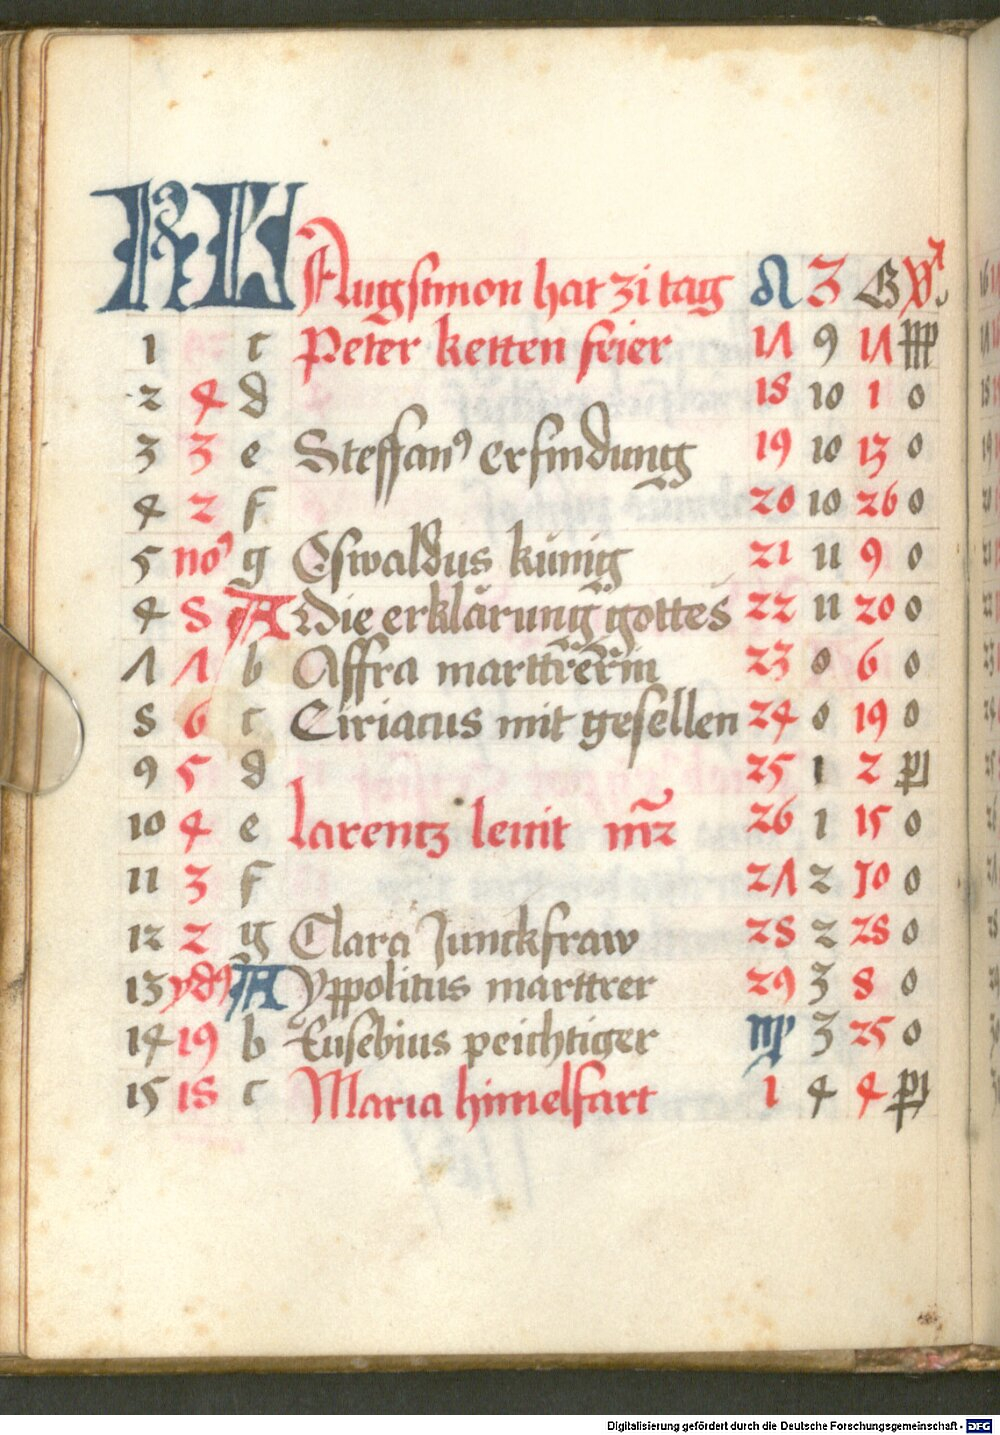 KL Augstmon hat 31 tag ♌ 3 G
1 c Peter ketten feier 17 9 17
2 4 d 18 10 1 0
3 3 e Steffanꝰ erfindung 19 10 13 0
4 2 f 20 10 26 0
5 noꝰ g Oswaldus künig 21 11 9 0
4 8 A Die erklärung gottes 22 11 20 0
7 7 b Affra marttrerin 23 0 6 0
8 6 c Ciriacus mit gesellen 24 0 19 0
9 5 d 25 1 2
10 4 e larentz leuit mr̄z 26 1 15 0
11 3 f 27 2 10 0
12 2 g Clara Junckfraw 28 2 28 0
13 ydꝰ A Yppolitus marttrer 29 3 8 0
14 19 b Eusebius peichtiger ♍ 3 25 0
15 18 c Maria himelfart 1 4 4
Digitalisierung gefördert durch die Deutsche Forschungsgemeinschaft - DFG